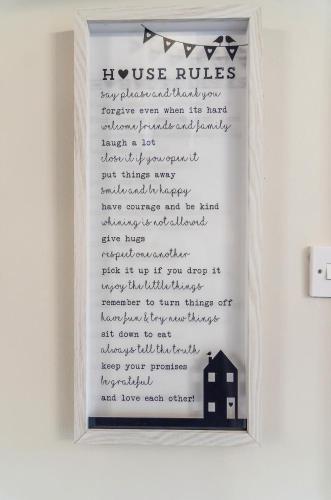 HOUSE RULES
say please and thank you
forgive even when its hard
welcome friends and family
laugh a lot
close it if you open it
put things away
smile and be happy
have courage and be kind
whining is not allowed
give hugs
respect one another
pick it up if you drop it
enjoy the little things
remember to turn things off
have fun & try new things
sit down to eat
always tell the truth
keep your promises
be grateful
and love each other!